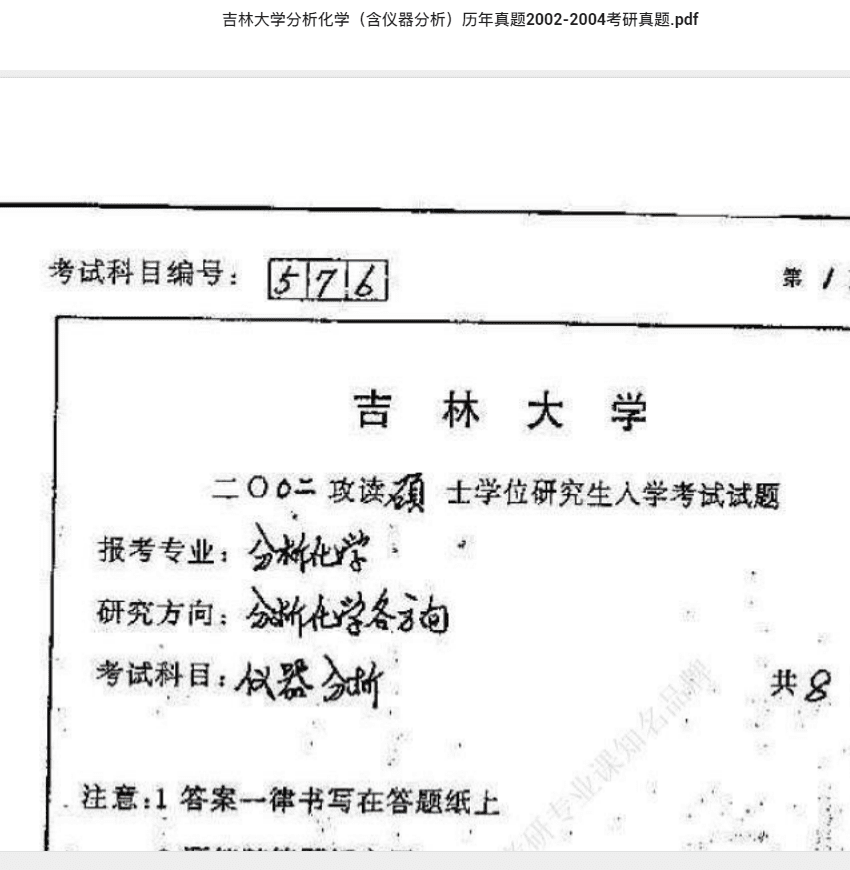 吉林大学分析化学（含仪器分析）历年真题2002-2004考研真题.pdf
考试科目编号： 576 第 1
吉 林 大 学
二〇〇二 攻读硕 士学位研究生入学考试试题
报考专业：分析化学
研究方向：分析化学各方向
考试科目：仪器分析 共 8
注意：1 答案一律书写在答题纸上
研专业课知名品牌